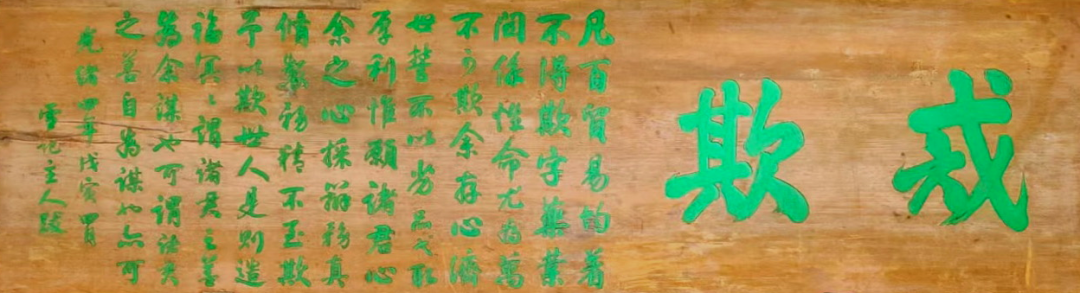 戒欺
凡百貿易均着
不得欺字藥業
關係性命尤為萬
不可欺余存心濟
世誓不以劣品弋取
厚利惟願諸君心
余之心採辦務真
脩製務精不至欺
予以欺世人是則造
福冥冥謂諸君之善
為余謀也可謂諸君
之善自為謀也亦可
光緒四年戊寅四月
雪記主人跋